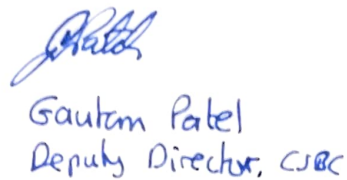 Gautam Patel
Deputy Director, CSBC